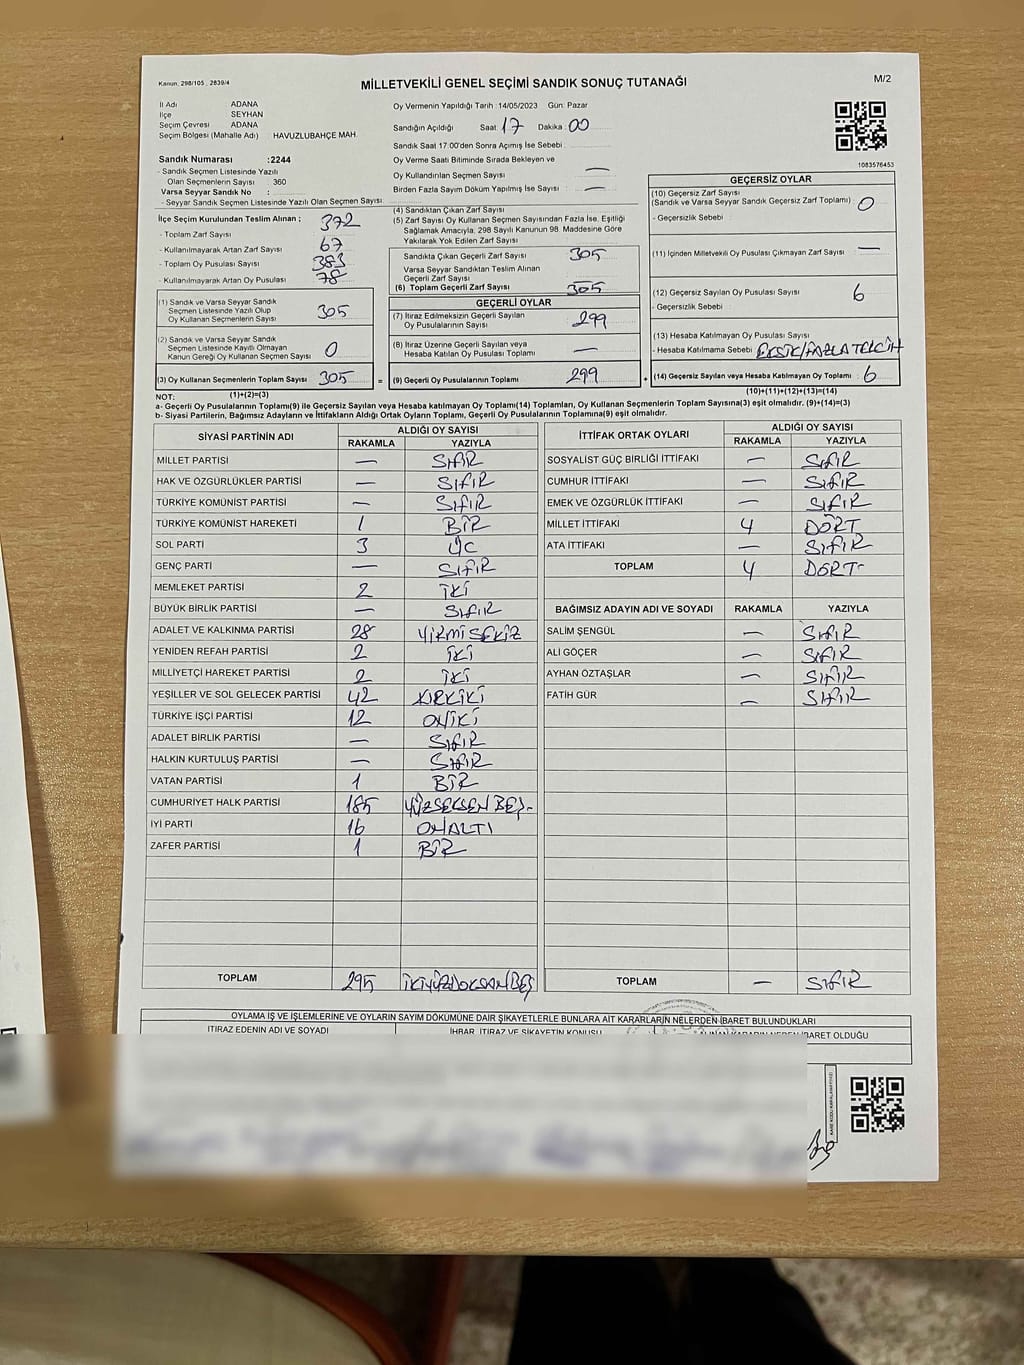 Kanun: 298/105 , 2839/4
MİLLETVEKİLİ GENEL SEÇİMİ SANDIK SONUÇ TUTANAĞI
M/2
İl Adı ADANA
İlçe SEYHAN
Seçim Çevresi ADANA
Seçim Bölgesi (Mahalle Adı) : HAVUZLUBAHÇE MAH.
Oy Vermenin Yapıldığı Tarih :14/05/2023 Gün: Pazar
Sandığın Açıldığı Saat: 17 Dakika: 00
Sandık Saat 17:00'den Sonra Açımış İse Sebebi :
Oy Verme Saati Bitiminde Sırada Bekleyen ve
Oy Kullandırılan Seçmen Sayısı : —
Birden Fazla Sayım Döküm Yapılmış İse Sayısı : —
1083576453
Sandık Numarası :2244
- Sandık Seçmen Listesinde Yazılı
Olan Seçmenlerin Sayısı : 360
Varsa Seyyar Sandık No :
- Seyyar Sandık Seçmen Listesinde Yazılı Olan Seçmen Sayısı
İlçe Seçim Kurulundan Teslim Alınan ;
- Toplam Zarf Sayısı 372
- Kullanılmayarak Artan Zarf Sayısı 67
- Toplam Oy Pusulası Sayısı 383
- Kullanılmayarak Artan Oy Pusulası 78
(4) Sandıktan Çıkan Zarf Sayısı
(5) Zarf Sayısı Oy Kullanan Seçmen Sayısından Fazla İse, Eşitliği
Sağlamak Amacıyla, 298 Sayılı Kanunun 98. Maddesine Göre
Yakılarak Yok Edilen Zarf Sayısı
Sandıkta Çıkan Geçerli Zarf Sayısı 305
Varsa Seyyar Sandıktan Teslim Alınan
Geçerli Zarf Sayısı
(6) Toplam Geçerli Zarf Sayısı 305
GEÇERLİ OYLAR
(7) İtiraz Edilmeksizin Geçerli Sayılan
Oy Pusulalarının Sayısı 299
(8) İtiraz Üzerine Geçerli Sayılan veya
Hesaba Katılan Oy Pusulası Toplamı —
(9) Geçerli Oy Pusulalarının Toplamı 299
(1) Sandık ve Varsa Seyyar Sandık
Seçmen Listesinde Yazılı Olup
Oy Kullanan Seçmenlerin Sayısı 305
(2) Sandık ve Varsa Seyyar Sandık
Seçmen Listesinde Kayıtlı Olmayan
Kanun Gereği Oy Kullanan Seçmen Sayısı 0
(3) Oy Kullanan Seçmenlerin Toplam Sayısı 305 =
GEÇERSİZ OYLAR
(10) Geçersiz Zarf Sayısı
(Sandık ve Varsa Seyyar Sandık Geçersiz Zarf Toplamı) 0
- Geçersizlik Sebebi :
(11) İçinden Milletvekili Oy Pusulası Çıkmayan Zarf Sayısı —
(12) Geçersiz Sayılan Oy Pusulası Sayısı 6
- Geçersizlik Sebebi :
(13) Hesaba Katılmayan Oy Pusulası Sayısı
- Hesaba Katılmama Sebebi : EKSİK/FAZLA TERCİH
+ (14) Geçersiz Sayılan veya Hesaba Katılmayan Oy Toplamı : 6
NOT: (1)+(2)=(3) (10)+(11)+(12)+(13)=(14)
a- Geçerli Oy Pusulasının Toplamı(9) ile Geçersiz Sayılan veya Hesaba katılmayan Oy Toplamı(14) Toplamları, Oy Kullanan Seçmenlerin Toplam Sayısına(3) eşit olmalıdır. (9)+(14)=(3)
b- Siyasi Partilerin, Bağımsız Adayların ve İttifakların Aldığı Ortak Oyların Toplamı, Geçerli Oy Pusulalarının Toplamına(9) eşit olmalıdır.
SİYASİ PARTİNİN ADI ALDIĞI OY SAYISI
RAKAMLA YAZIYLA
MİLLET PARTİSİ — SIFIR
HAK VE ÖZGÜRLÜKLER PARTİSİ — SIFIR
TÜRKİYE KOMÜNİST PARTİSİ — SIFIR
TÜRKİYE KOMÜNİST HAREKETİ 1 BİR
SOL PARTİ 3 ÜÇ
GENÇ PARTİ — SIFIR
MEMLEKET PARTİSİ 2 İKİ
BÜYÜK BİRLİK PARTİSİ — SIFIR
ADALET VE KALKINMA PARTİSİ 28 YİRMİ SEKİZ
YENİDEN REFAH PARTİSİ 2 İKİ
MİLLİYETÇİ HAREKET PARTİSİ 2 İKİ
YEŞİLLER VE SOL GELECEK PARTİSİ 42 KIRKİKİ
TÜRKİYE İŞÇİ PARTİSİ 12 ONİKİ
ADALET BİRLİK PARTİSİ — SIFIR
HALKIN KURTULUŞ PARTİSİ — SIFIR
VATAN PARTİSİ 1 BİR
CUMHURİYET HALK PARTİSİ 185 YÜZSEKSEN BEŞ-
İYİ PARTİ 16 ONALTI
ZAFER PARTİSİ 1 BİR
TOPLAM 295 İKİYÜZDOKSAN BEŞ
İTTİFAK ORTAK OYLARI ALDIĞI OY SAYISI
RAKAMLA YAZIYLA
SOSYALİST GÜÇ BİRLİĞİ İTTİFAKI — SIFIR
CUMHUR İTTİFAKI — SIFIR
EMEK VE ÖZGÜRLÜK İTTİFAKI — SIFIR
MİLLET İTTİFAKI 4 DÖRT
ATA İTTİFAKI — SIFIR
TOPLAM 4 DÖRT-
BAĞIMSIZ ADAYIN ADI VE SOYADI RAKAMLA YAZIYLA
SALİM ŞENGÜL — SIFIR
ALİ GÖÇER — SIFIR
AYHAN ÖZTAŞLAR — SIFIR
FATİH GÜR — SIFIR
TOPLAM — SIFIR
OYLAMA İŞ VE İŞLEMLERİNE VE OYLARIN SAYIM DÖKÜMÜNE DAİR ŞİKAYETLERLE BUNLARA AİT KARARLARIN NELERDEN İBARET BULUNDUKLARI
İTİRAZ EDENİN ADI VE SOYADI İHBAR, İTİRAZ VE ŞİKAYETİN KONUSU ALINAN KARARIN NEDEN İBARET OLDUĞU